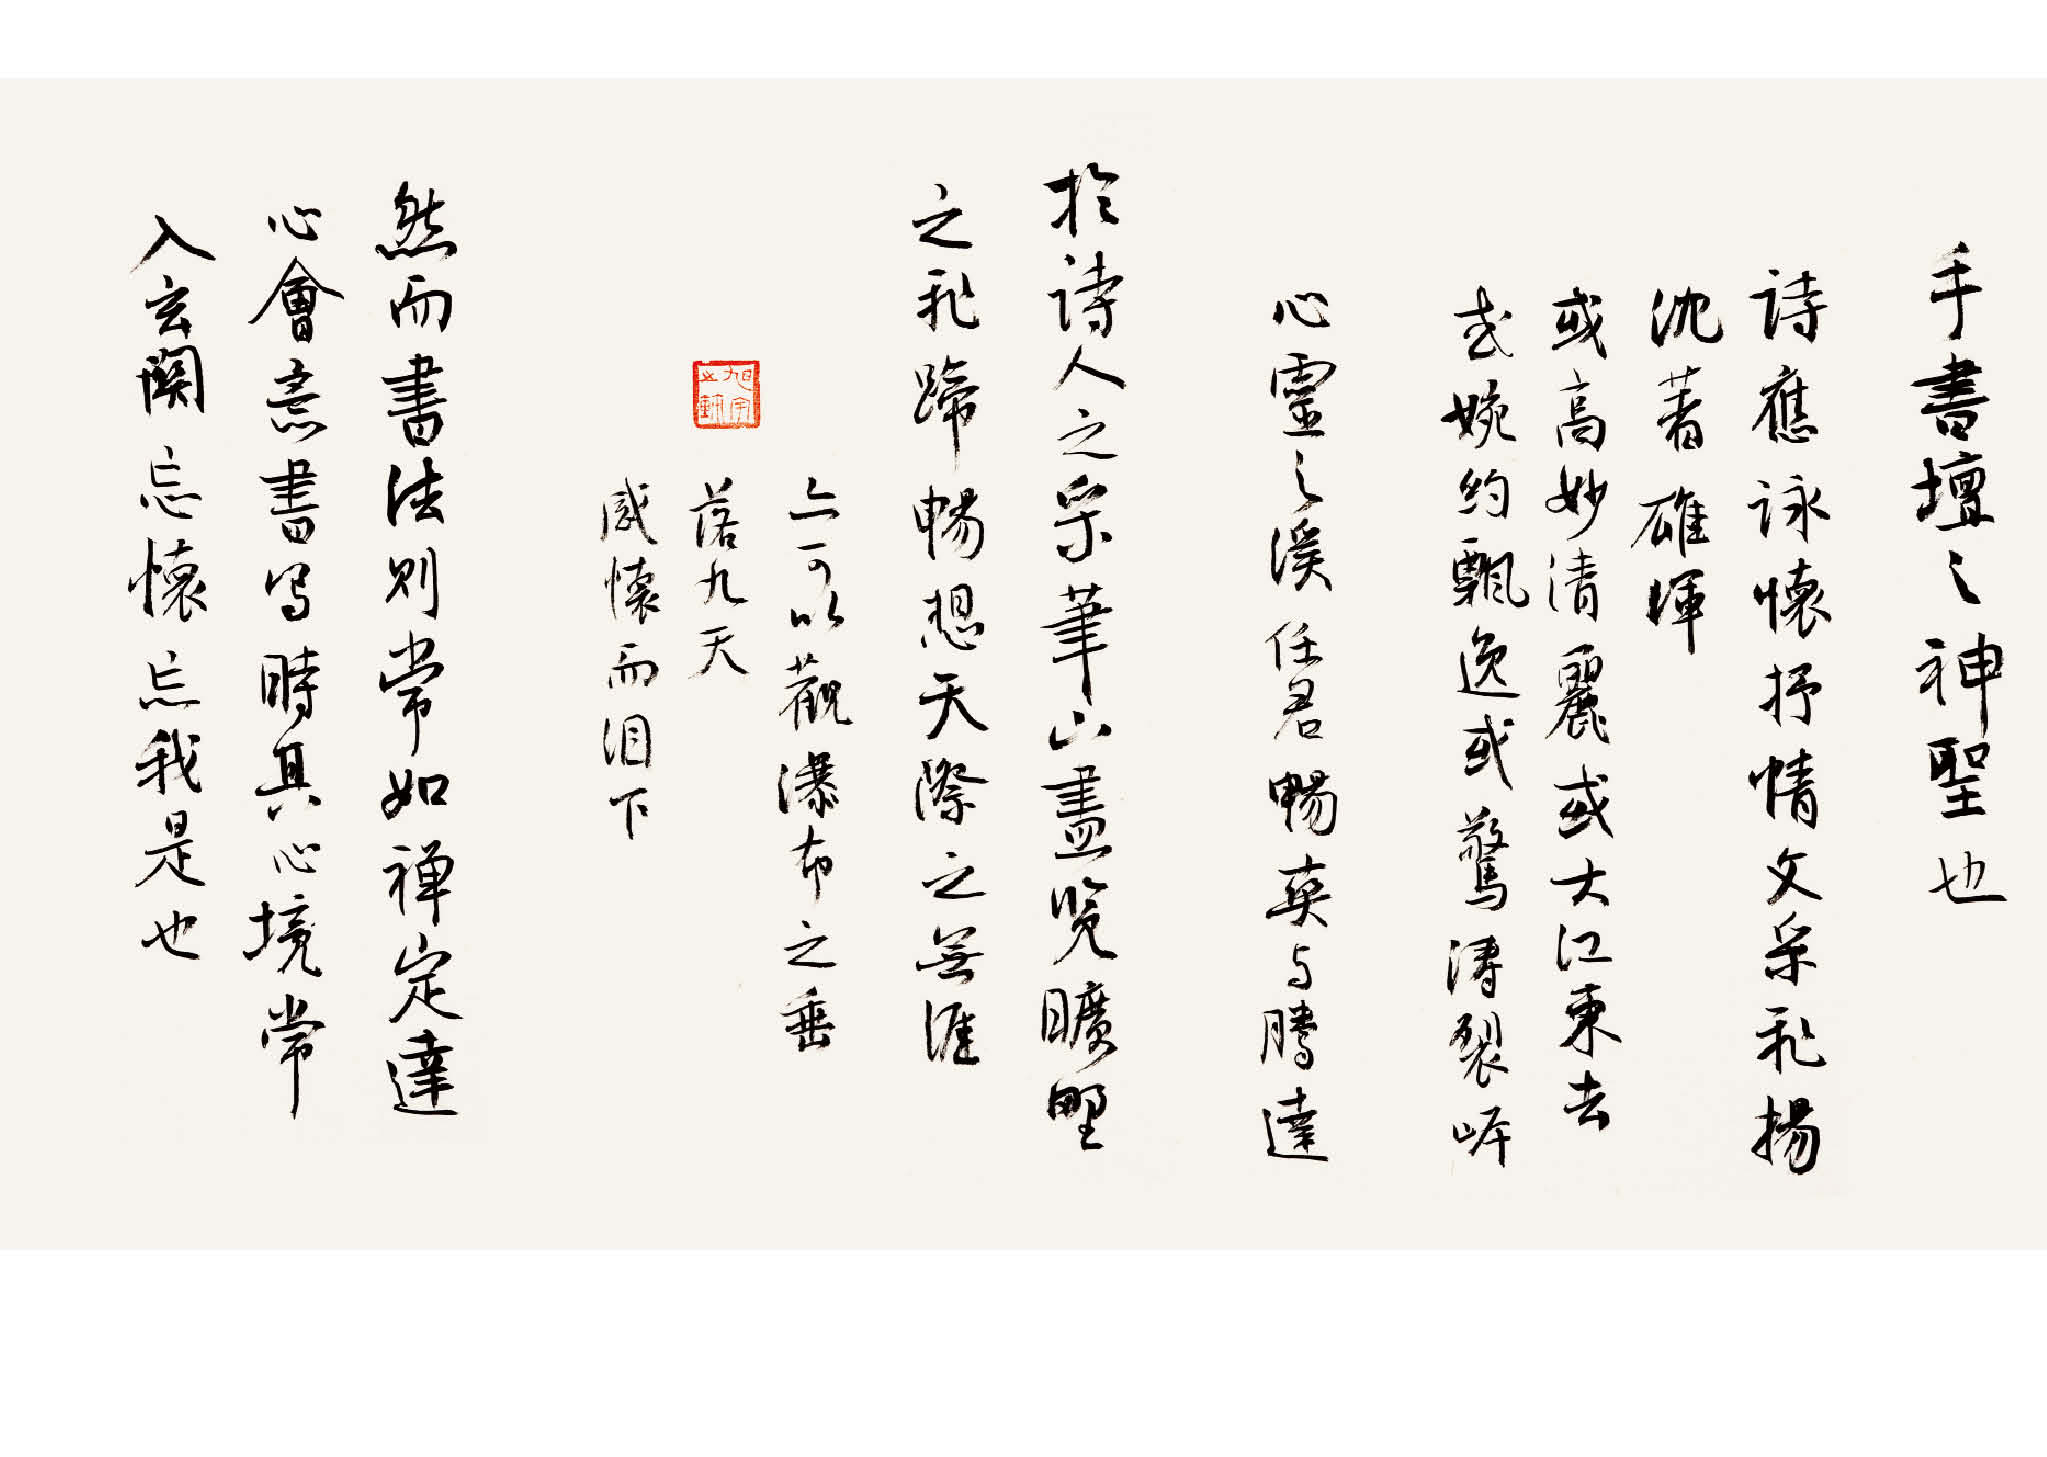 手書壇之神聖也
詩應詠懷抒情文采飛揚
沈著雄渾
或高妙清麗或大江東去
或婉約飄逸或驚濤裂岸
心靈之溪任君暢英与騰達
於诗人之采筆山盡览曠野
之飛蹄暢想天際之無涯
亦可以觀瀑布之垂
落九天
感懷而泪下
然而書法则常如禅定達
心會意書写時其心境常
入玄関忘懷忘我是也